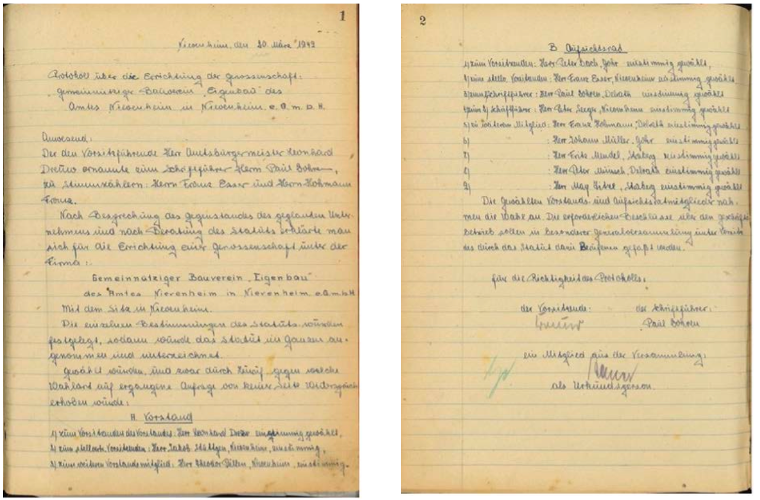 1
Nievenheim, den 30. März 1949
Protokoll über die Errichtung der Genossenschaft:
gemeinnütziger Bauverein „Eigenbau" des
Amtes Nievenheim in Nievenheim e.G.m.b.H.
Anwesend:
Der den Vorsitzführende Herr Amtsbürgermeister Leonhard
ernannte zum Schriftführer Herrn Paul
zu Stimmzählern: Herrn Franz Esser und Herrn Hohmann
Franz.
Nach Besprechung des Gegenstandes des geplanten Unter-
nehmens und nach Beratung des Statuts erklärte man
sich für die Errichtung einer Genossenschaft unter der
Firma:
Gemeinnütziger Bauverein „Eigenbau"
des Amtes Nievenheim in Nievenheim e.G.m.b.H
Mit dem Sitz in Nievenheim.
Die einzelnen Bestimmungen des Statuts wurden
festgelegt, sodann wurde das Statut im Ganzen an-
genommen und unterzeichnet.
Gewählt wurden, und zwar durch Zuruf, gegen welche
Wahlart auf ergangene Anfrage von keiner Seite Widerspruch
erhoben wurde:
A. Vorstand
1) zum Vorsitzenden des Vorstandes: Herr Leonhard einstimmig gewählt,
2) zum stellvertr. Vorsitzenden: Herr Jakob Nievenheim, einstimmig,
3) zum weiteren Vorstandsmitglied: Herr Theodor Nievenheim, einstimmig.
2
B Aufsichtsrat
1) zum Vorsitzenden: Herr Peter Gohr einstimmig gewählt,
2) zum stellv. Vorsitzenden: Herr Franz Esser, Nievenheim einstimmig gewählt
3) zum Schriftführer: Herr Paul Delrath einstimmig gewählt
4) zum Schriftführer: Herr Peter Nievenheim einstimmig gewählt
5) weiteren Mitglied: Herr Franz Hohmann, Delrath einstimmig gewählt
6) : Herr Johann Müller, Gohr einstimmig gewählt
7) : Herr Fritz Mendel, einstimmig gewählt
8) : Herr Peter Delrath einstimmig gewählt
9) : Herr einstimmig gewählt
Die gewählten Vorstands und Aufsichtsratsmitglieder näh-
men die Wahl an. Die erforderlichen Beschlüsse über den Geschäfts-
betrieb sollen in besonderer Generalversammlung unter
des durch das Statut dazu Berufenen gefaßt werden.
Für die Richtigkeit des Protokolls:
der Vorsitzende: der Schriftführer:
Paul
ein Mitglied aus der Versammlung:
als Urkundsperson.